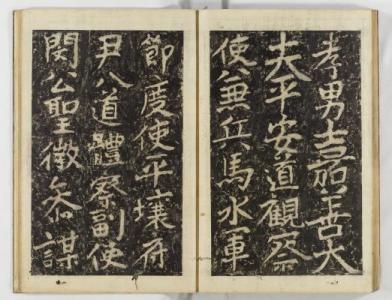 孝男嘉善大
夫平安道觀察
使兼兵馬水軍
節度使平壤府
尹八道體察副使
閔公聖徵叅謀